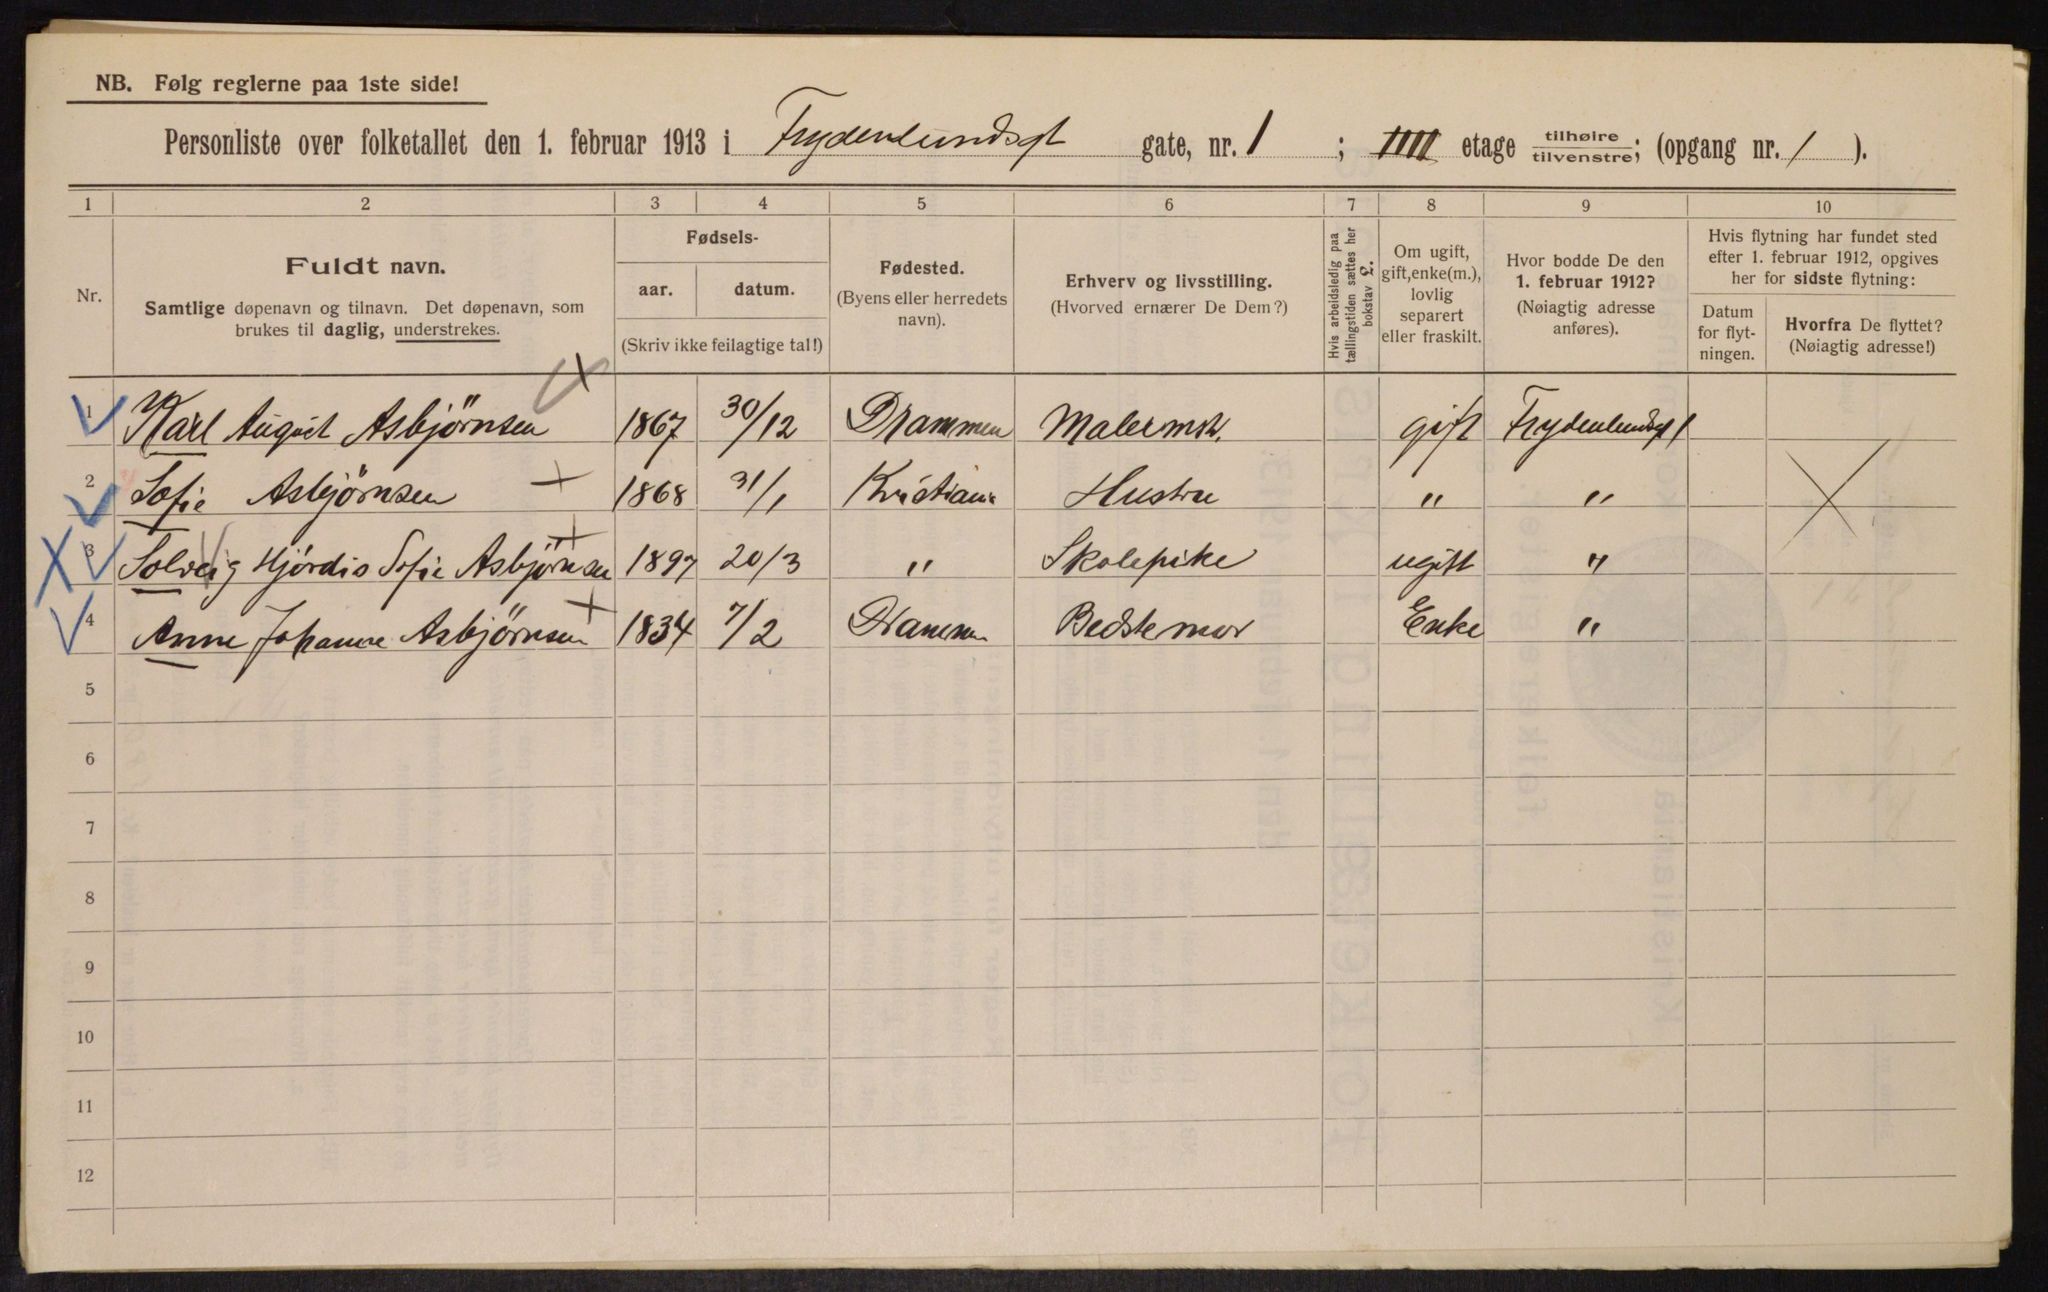 NB. Følg reglerne paa 1ste side!
Personliste over folketallet den 1. februar 1913 i Frydenlundsgt gate, nr. 1 ; IIII etage tilhøire/tilvenstre; (opgang nr. 1 ).
1 2 3 4 5 6 7 8 9 10
Nr.
Fuldt navn.
Samtlige døpenavn og tilnavn. Det døpenavn, som
brukes til daglig, understrekes.
Fødsels-
aar. datum.
(Skriv ikke feilagtige tal!)
Fødested.
(Byens eller herredets
navn).
Erhverv og livsstilling.
(Hvorved ernærer De Dem?)
Hvis arbeidsledig paa
tællingstiden sættes her
bokstav L.
Om ugift,
gift, enke(m.),
lovlig
separert
eller fraskilt.
Hvor bodde De den
1. februar 1912?
(Nøiagtig adresse
anføres).
Hvis flytning har fundet sted
efter 1. februar 1912, opgives
her for sidste flytning:
Datum
for flyt-
ningen.
Hvorfra De flyttet?
(Nøiagtig adresse!)
1 Karl August Asbjörnsen 1867 30/12 Drammen Malermstr. gift Frydenlundsgt 1
2 Sofie Asbjørnsen 1868 31/1 Kristiania Hustru " "
3 Solveig Hjördis Sofie Asbjørnsen 1897 20/3 " Skolepike ugift "
4 Anne Johanne Asbjörnsen 1834 7/2 Drammen Bedstemor Enke "
5
6
7
8
9
10
11
12